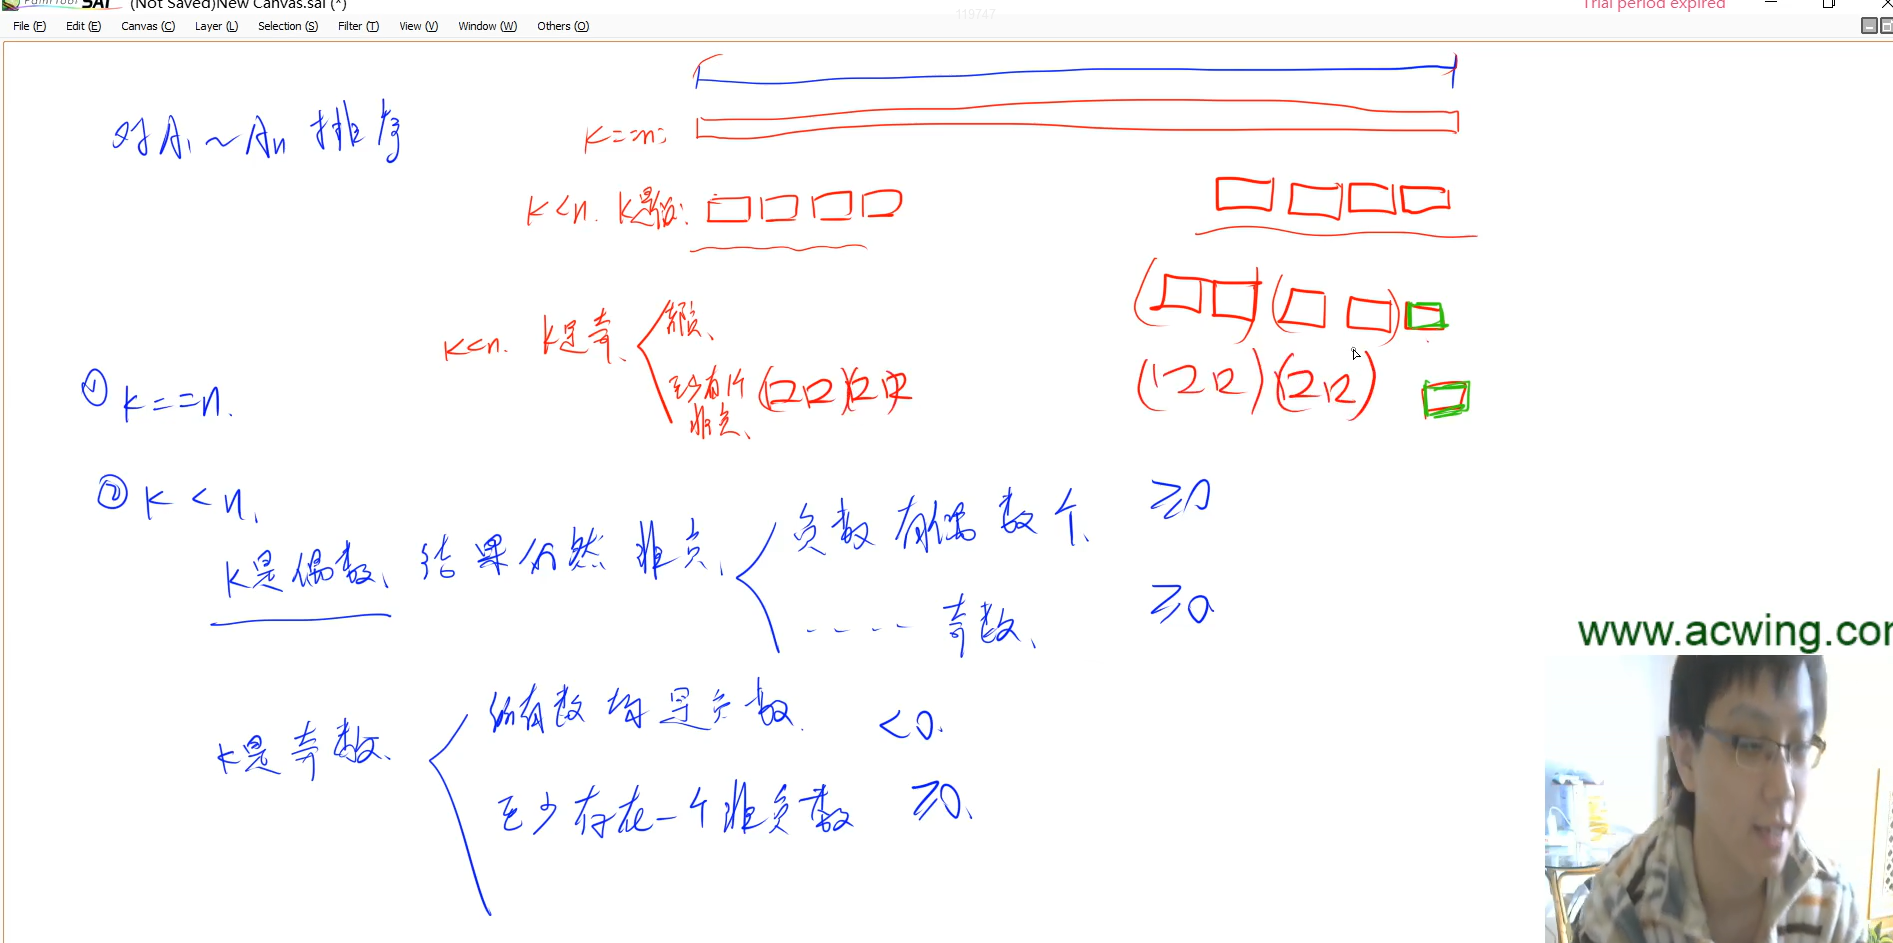 PaintTool SAI (Not Saved)New Canvas.sai (*)
119747
Trial period expired
File (F) Edit (E) Canvas (C) Layer (L) Selection (S) Filter (T) View (V) Window (W) Others (O)
对A₁~Aₙ 排序
k==n:
k<n. k是偶:
k<n. k是奇、
至少有1个
非负、
① k==n.
② k<n,
k是偶数、结果仍然非负、
负数有偶数个、 ≥0
---- 奇数、 ≥0
k是奇数、
所有数均是负数. <0.
至少存在一个非负数 ≥0、
www.acwing.com